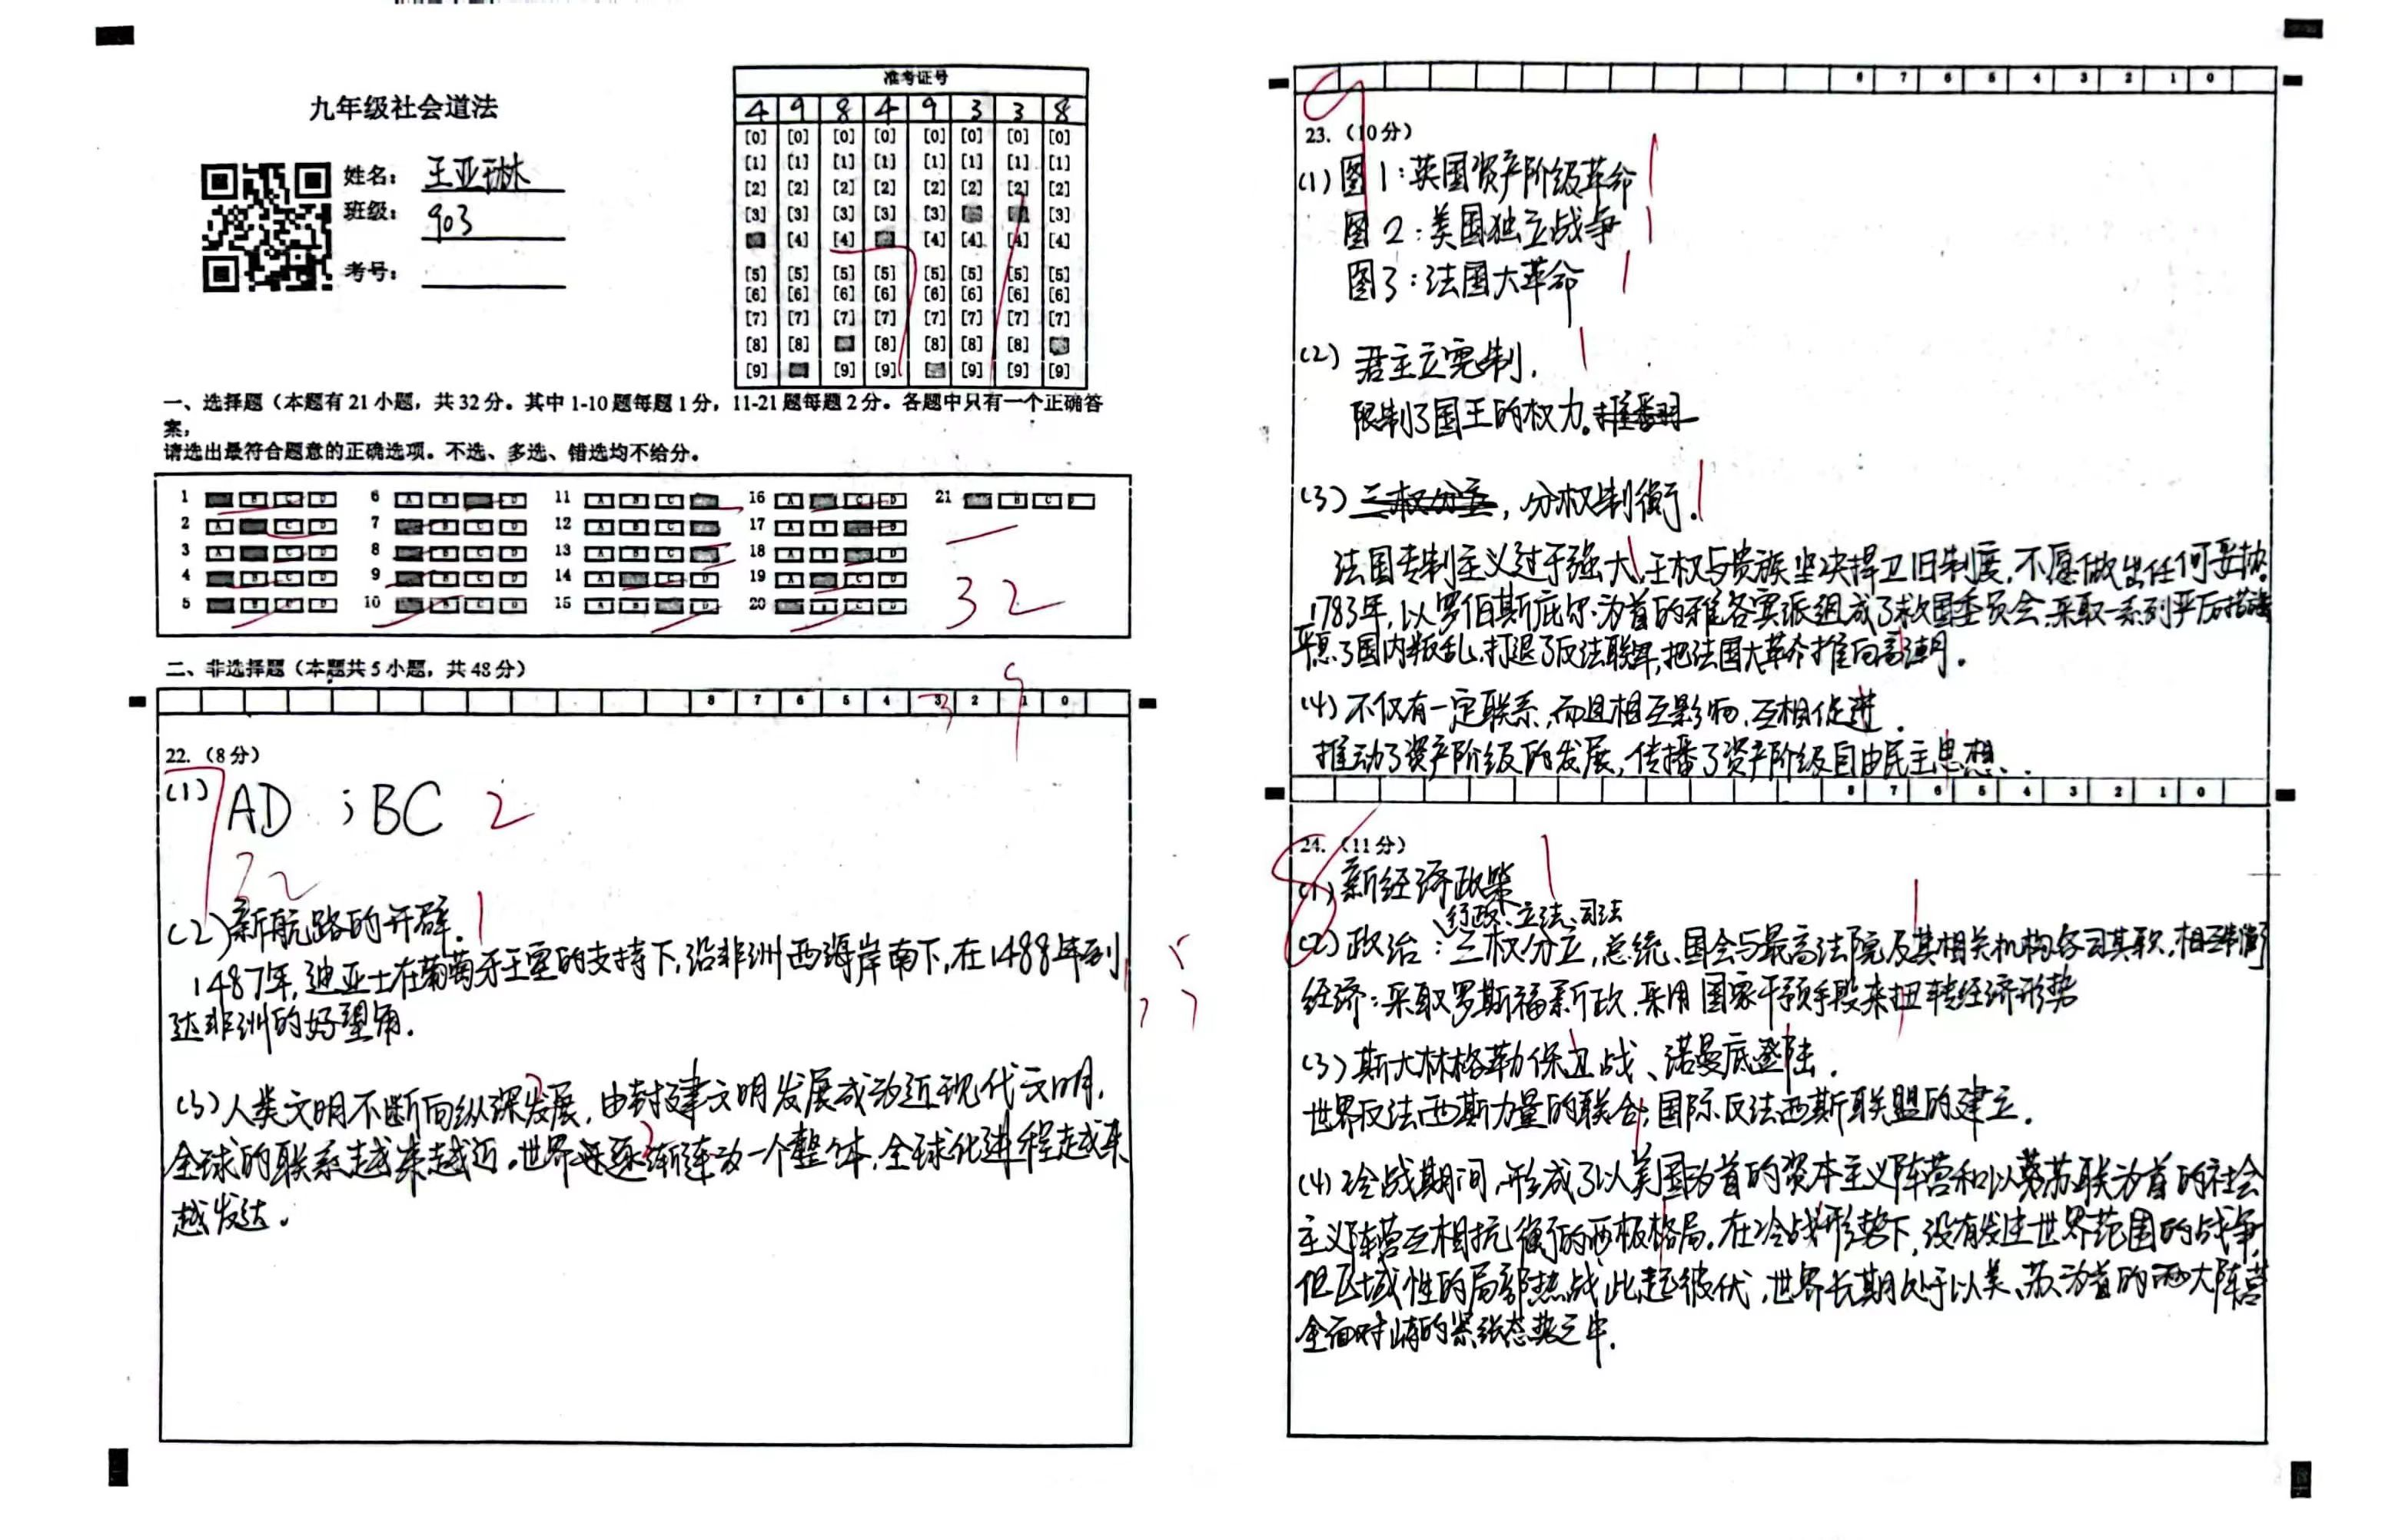 九年级社会道法
姓名： 王亚琳
班级： 903
考号：
准考证号
4 9 8 4 9 3 3 8
[0] [0] [0] [0] [0] [0] [0] [0]
[1] [1] [1] [1] [1] [1] [1] [1]
[2] [2] [2] [2] [2] [2] [2] [2]
[3] [3] [3] [3] [3] [3]
[4] [4] [4] [4] [4] [4]
[5] [5] [5] [5] [5] [5] [5] [5]
[6] [6] [6] [6] [6] [6] [6] [6]
[7] [7] [7] [7] [7] [7] [7] [7]
[8] [8] [8] [8] [8] [8]
[9] [9] [9] [9] [9] [9]
一、选择题（本题有21小题，共32分。其中1-10题每题1分，11-21题每题2分。各题中只有一个正确答
案，
请选出最符合题意的正确选项。不选、多选、错选均不给分。
1 B C D 6 A B D 11 A B C 16 A C D 21 B C D
2 A C D 7 B C D 12 A B C 17 A B D
3 A C D 8 B C D 13 A B C 18 A B D
4 B C D 9 B C D 14 A C D 19 A C D
5 B C D 10 B C D 15 A B D 20 B C D
32
二、非选择题（本题共5小题，共48分）
8 7 6 5 4 3 2 1 0
22.（8分）
7
(1) AD ；BC 2
(2) 新航路的开辟. 1
1487年, 迪亚士在葡萄牙王室的支持下, 沿非洲西海岸南下, 在1488年到
达非洲的好望角.
(3) 人类文明不断向纵深发展, 由封建文明发展成为近现代文明,
全球的联系越来越近。世界逐渐连为一个整体, 全球化进程越来
越发达。
8 7 6 5 4 3 2 1 0
9
23.（10分）
(1) 图1: 英国资产阶级革命 1
图2: 美国独立战争 1
图3: 法国大革命 1
(2) 君主立宪制. 1
限制了国王的权力。推翻
(3) 三权分立, 分权制衡. 1
法国专制主义过于强大, 王权与贵族坚决捍卫旧制度, 不愿做出任何妥协.
1783年, 以罗伯斯庇尔为首的雅各宾派组成了救国委员会, 采取一系列严厉措施
平息了国内叛乱, 打退了反法联盟, 把法国大革命推向高潮。
(4) 不仅有一定联系, 而且相互影响, 互相促进.
推动了资产阶级的发展, 传播了资产阶级自由民主思想.
8 7 6 5 4 3 2 1 0
8
24.（11分）
(1) 新经济政策 1
行政、立法、司法
(2) 政治: 三权分立, 总统、国会与最高法院及其相关机构各司其职, 相互制衡
经济: 采取罗斯福新政, 采用国家干预手段来扭转经济形势
(3) 斯大林格勒保卫战、诺曼底登陆.
世界反法西斯力量的联合; 国际反法西斯联盟的建立.
(4) 冷战期间, 形成了以美国为首的资本主义阵营和以苏联为首的社会
主义阵营互相抗衡的两极格局。在冷战形势下, 没有发生世界范围的战争,
但区域性的局部热战此起彼伏, 世界长期处于以美、苏为首的两大阵营
全面对峙的紧张态势之中.